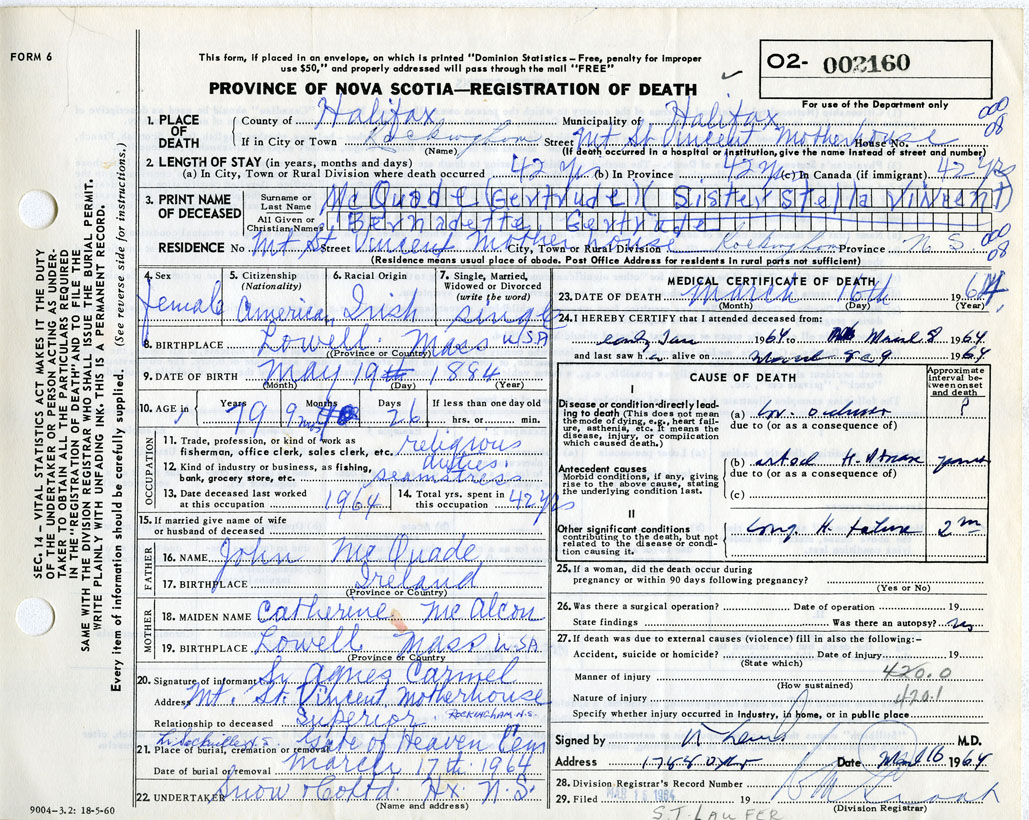 FORM 6
This form, if placed in an envelope, on which is printed "Dominion Statistics – Free, penalty for improper
use $50," and properly addressed will pass through the mail "FREE"
O2- 002160
PROVINCE OF NOVA SCOTIA—REGISTRATION OF DEATH
For use of the Department only
1. PLACE OF DEATH
County of Halifax Municipality of Halifax
If in City or Town Rockingham Street Mt St Vincent Motherhouse House No.
(Name) (If death occurred in a hospital or institution, give the name instead of street and number)
08
2. LENGTH OF STAY (in years, months and days)
(a) In City, Town or Rural Division where death occurred 42 yrs (b) In Province 42 yrs (c) In Canada (if immigrant) 42 yrs
3. PRINT NAME OF DECEASED
Surname or Last Name Mc Quade (Gertrude) (Sister Stella Vincent)
All Given or Christian Names Bernadette Gertrude
RESIDENCE No. Mt St Street Vincent Motherhouse City, Town or Rural Division Rockingham Province N.S.
(Residence means usual place of abode. Post Office Address for residents in rural parts not sufficient)
08
4. Sex
female
5. Citizenship
(Nationality)
American
6. Racial Origin
Irish
7. Single, Married,
Widowed or Divorced
(write the word)
single
8. BIRTHPLACE Lowell Mass USA
(Province or Country)
9. DATE OF BIRTH May 19th 1884
(Month) (Day) (Year)
10. AGE in Years Months Days If less than one day old
79 9 mos 26 hrs. or min.
OCCUPATION
11. Trade, profession, or kind of work as
fisherman, office clerk, sales clerk, etc. religious duties
12. Kind of industry or business, as fishing,
bank, grocery store, etc. seamstress
13. Date deceased last worked
at this occupation 1964
14. Total yrs. spent in
this occupation 42 yrs
15. If married give name of wife
or husband of deceased
FATHER
16. NAME John Mc Quade
17. BIRTHPLACE Ireland
(Province or Country)
MOTHER
18. MAIDEN NAME Catherine Mc Alcon
19. BIRTHPLACE Lowell Mass USA
(Province or Country
20. Signature of informant Sr Agnes Carmel
Address Mt. St. Vincent Motherhouse
ROCKINGHAM N.S.
Relationship to deceased Superior
21. Place of burial, cremation or removal Gate of Heaven Cem
Date of burial or removal March 17th 1964
22. UNDERTAKER Snow & Co Ltd Hx. N.S.
(Name and address)
9004–3.2: 18-5-60
MEDICAL CERTIFICATE OF DEATH
23. DATE OF DEATH March 16th 1964
(Month) (Day) (Year)
24. I HEREBY CERTIFY that I attended deceased from:
early Jan 1964 to March 8 1964
and last saw h alive on March 8 1964
CAUSE OF DEATH
Approximate
interval be-
tween onset
and death
I
Disease or condition directly lead-
ing to death (This does not mean
the mode of dying, e.g., heart fail-
ure, asthenia, etc. It means the
disease, injury, or complication
which caused death.)
(a) Cor. ?
due to (or as a consequence of)
Antecedent causes
Morbid conditions, if any, giving
rise to the above cause, stating
the underlying condition last.
(b) H. years
due to (or as a consequence of)
(c)
II
Other significant conditions
contributing to the death, but not
related to the disease or condi-
tion causing it.
Cong. H. failure 2 m
25. If a woman, did the death occur during
pregnancy or within 90 days following pregnancy?
(Yes or No)
26. Was there a surgical operation? Date of operation 19
State findings Was there an autopsy? No
27. If death was due to external causes (violence) fill in also the following:–
Accident, suicide or homicide? Date of injury 19
(State which)
Manner of injury 420.0
(How sustained)
Nature of injury 420.1
Specify whether injury occurred in industry, in home, or in public place
Signed by Lewis M.D.
Address Date March 16 1964
28. Division Registrar's Record Number
29. Filed MAR 16 1964 19
(Division Registrar)
S.T. LAWFER
SEC. 14 – VITAL STATISTICS ACT MAKES IT THE DUTY
OF THE UNDERTAKER OR PERSON ACTING AS UNDER-
TAKER TO OBTAIN ALL THE PARTICULARS REQUIRED
IN THE "REGISTRATION OF DEATH" AND TO FILE THE
SAME WITH THE DIVISION REGISTRAR WHO SHALL ISSUE THE BURIAL PERMIT.
WRITE PLAINLY WITH UNFADING INK. THIS IS A PERMANENT RECORD.
Every item of information should be carefully supplied. (See reverse side for instructions.)